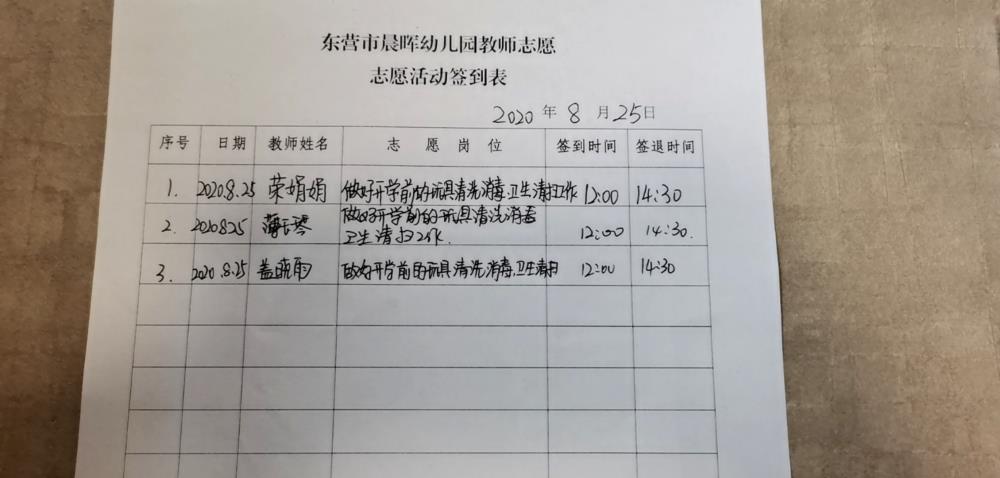 东营市晨晖幼儿园教师志愿
志愿活动签到表
2020 年 8 月 25日
序号 日期 教师姓名 志 愿 岗 位 签到时间 签退时间
1. 2020.8.25 荣娟娟 做好开学前的玩具清洗消毒、卫生清扫工作 12:00 14:30
做好开学前的玩具清洗消毒
2. 2020825 卫生清扫工作. 12:00 14:30.
3. 2020.8.25 盖晓雨 做好开学前的玩具清洗消毒、卫生清扫 12:00 14:30